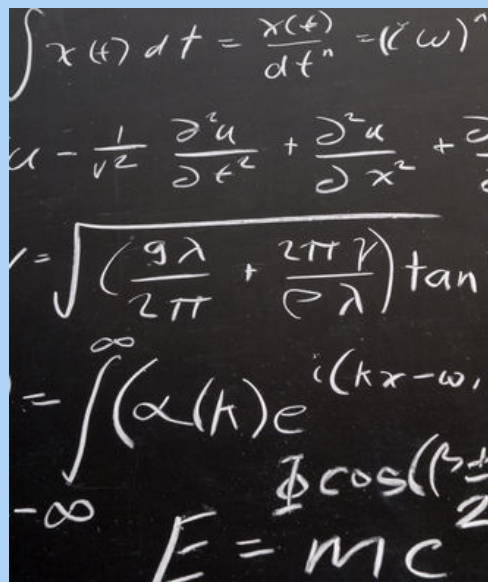 ∫ x(t) dt = x(t)/dtⁿ = (iω)ⁿ
u - 1/v² ∂²u/∂t² + ∂²u/∂x² +
= √(gλ/2π + 2πγ/ρλ) tan
= ∫_{-∞}^{∞} (α(k)e^{i(kx-ω
Φ cos(β+/2
E = mc